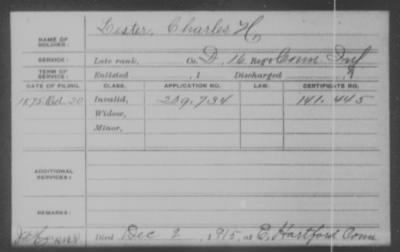 NAME OF SOLDIER: Lester, Charles H.
SERVICE: Late rank, Co. D, 16 Reg't Conn Inf
TERM OF SERVICE: Enlisted , 1 Discharged , 1
DATE OF FILING. CLASS. APPLICATION NO. LAW. CERTIFICATE NO.
1875 Oct. 20 Invalid, 209.734 141.445
Widow,
Minor,
ADDITIONAL SERVICES:
REMARKS:
Died Dec 2, 1915, at E. Hartford Conn